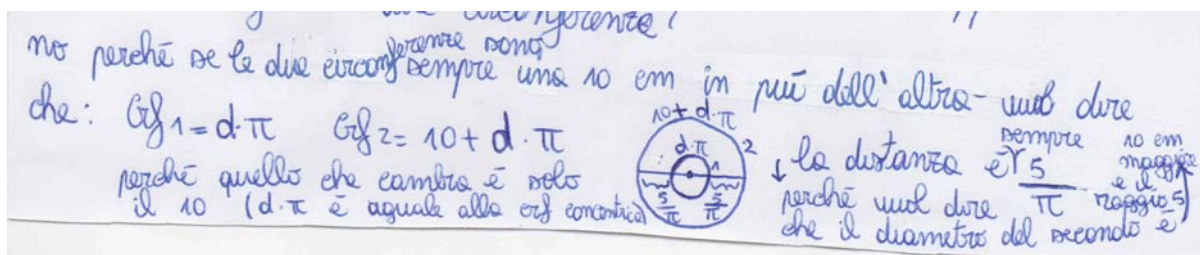 due circonferenze?
no perché se le due circonferenze sono sempre una 10 cm in più dell'altra - vuol dire
che: Crf 1 = d·π Crf 2 = 10 + d·π
perché quello che cambia è solo
il 10 (d·π è aguale alla crf concentrica)
10 + d·π
d·π
1
2
5/π
5/π
↓ la distanza è sempre 5/π
perché vuol dire
che il diametro del secondo è
10 cm
maggiore
e il
raggio 5